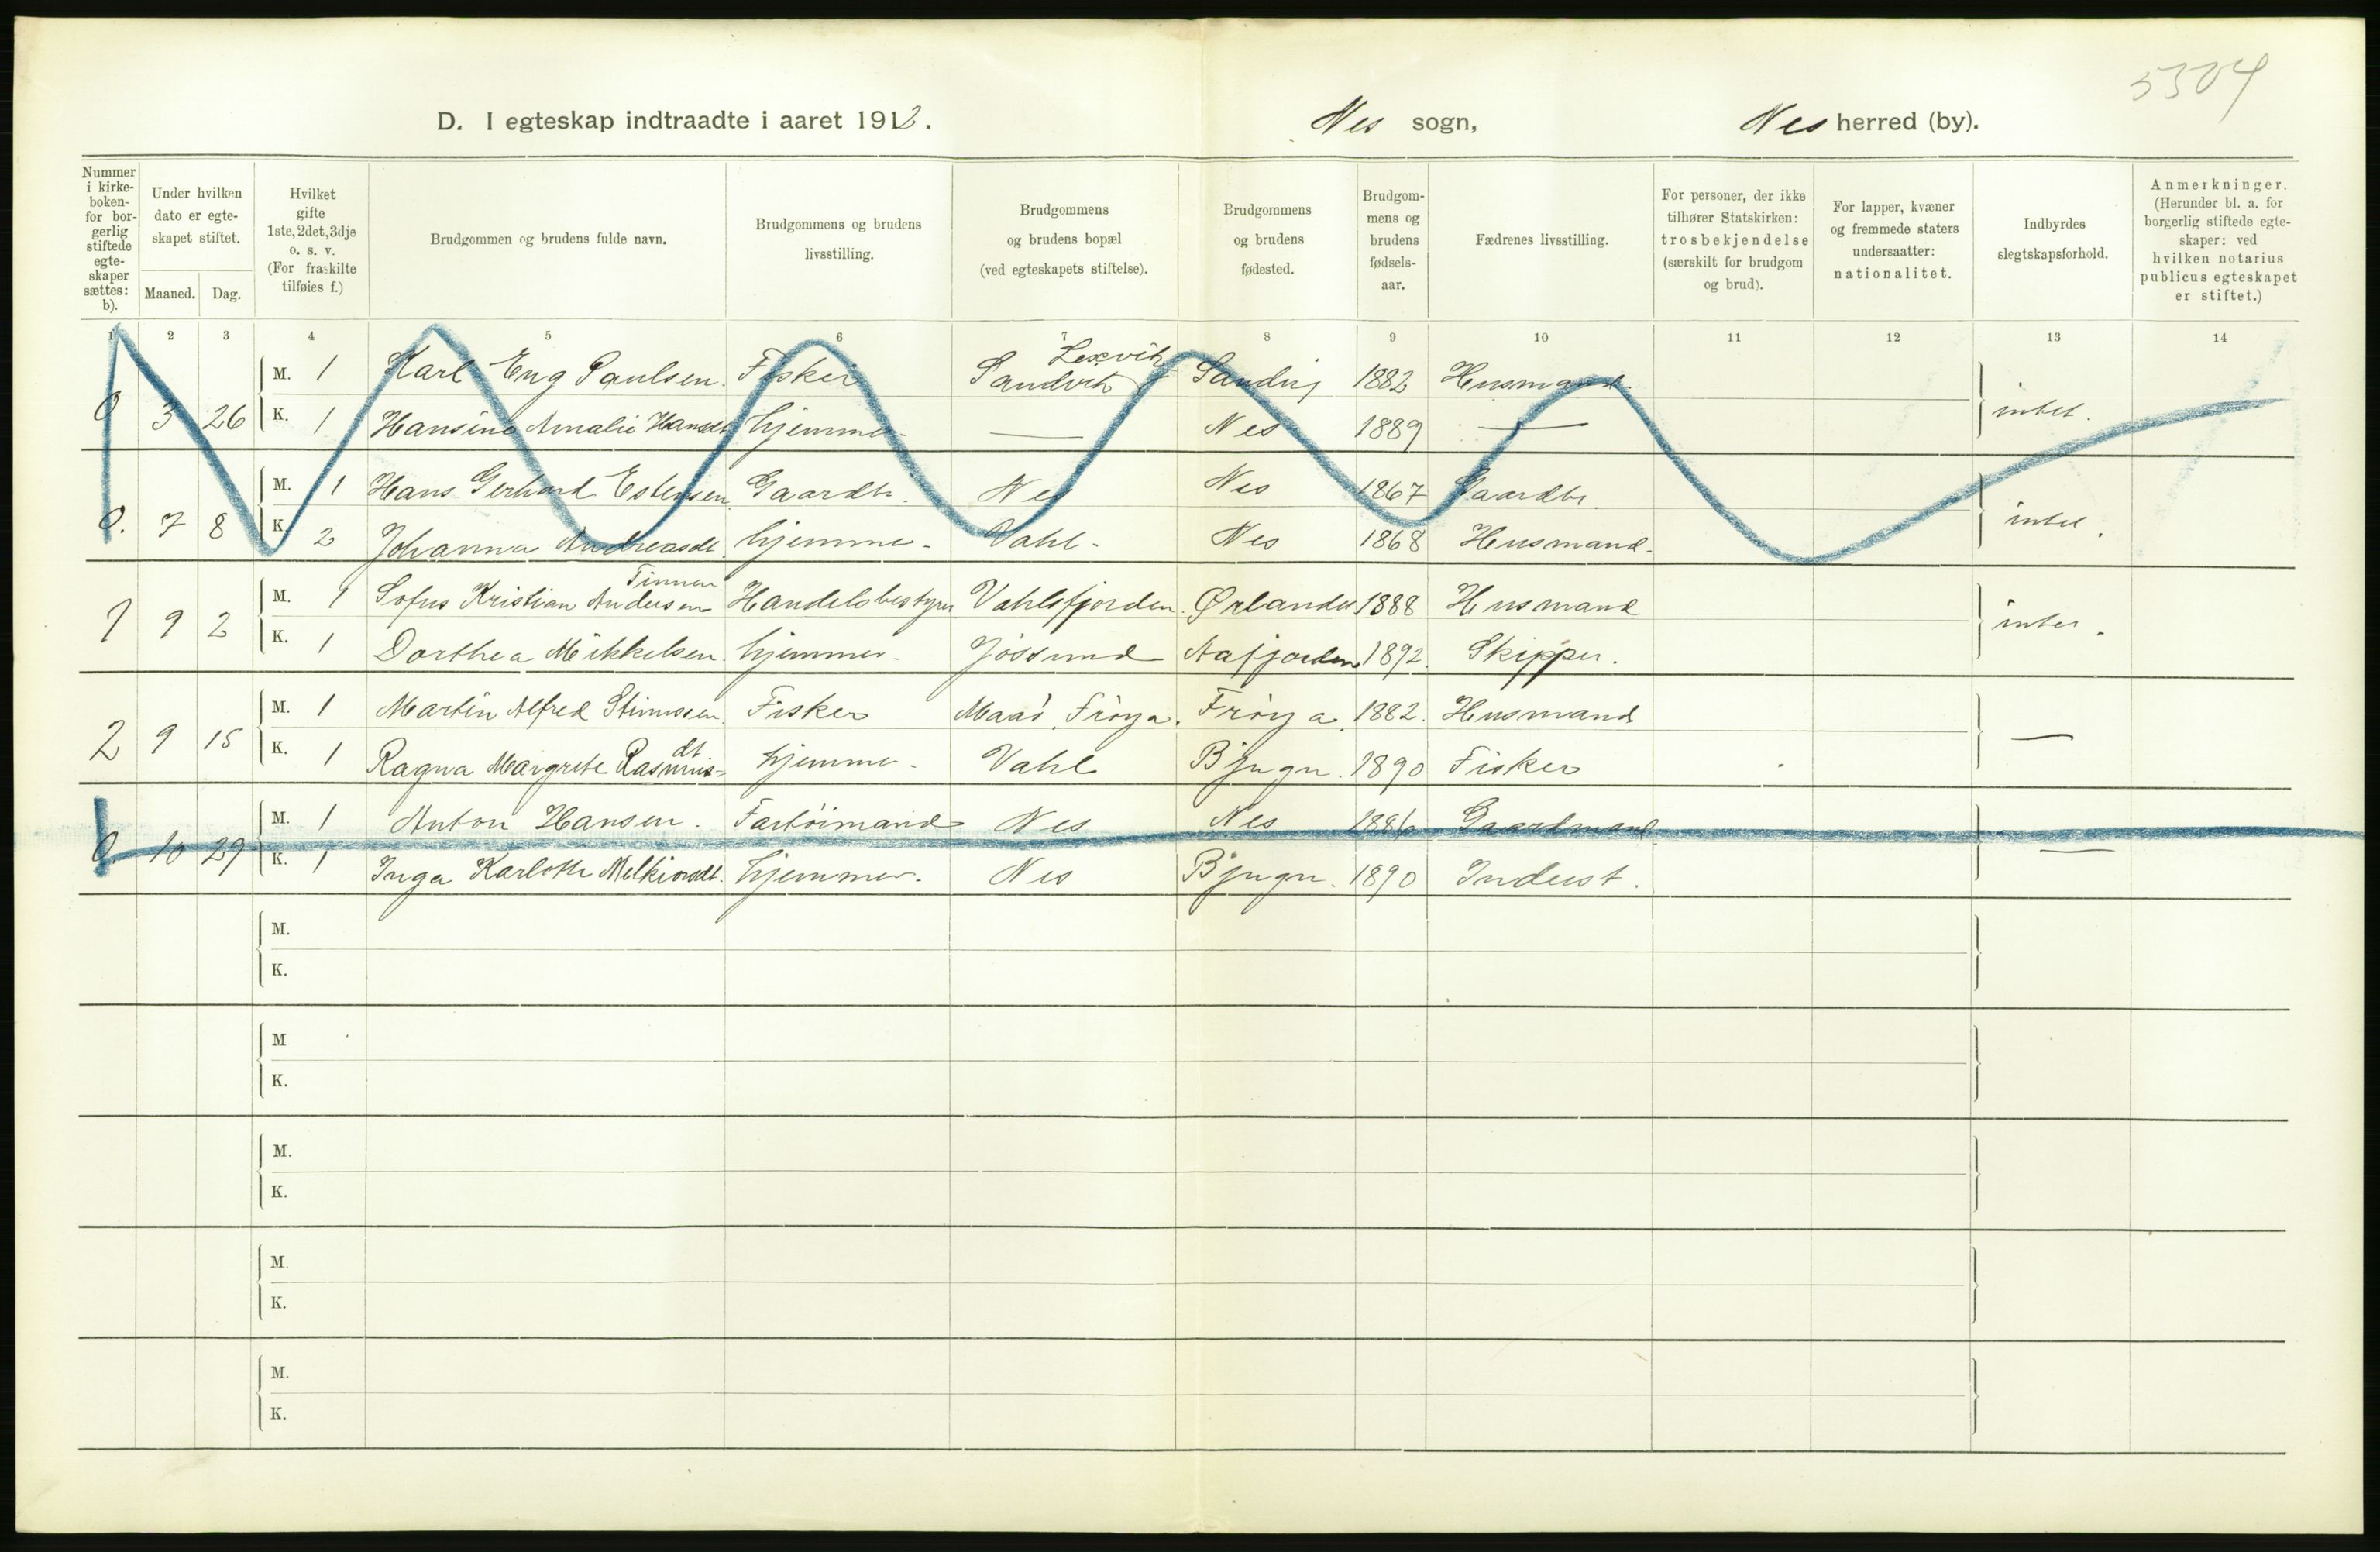 5304
D. I egteskap indtraadte i aaret 1912. Nes sogn, Nes herred (by).
Nummer i kirke- boken- for bor- gerlig stiftede egte- skaper sættes: b).
Under hvilken dato er egte- skapet stiftet.
Maaned. Dag.
Hvilket gifte 1ste, 2det, 3dje o. s. v. (For fraskilte tilføies f.)
Brudgommen og brudens fulde navn.
Brudgommens og brudens livsstilling.
Brudgommens og brudens bopæl (ved egteskapets stiftelse).
Brudgommens og brudens fødested.
Brudgom- mens og brudens fødsels- aar.
Fædrenes livsstilling.
For personer, der ikke tilhører Statskirken: trosbekjendelse (særskilt for brudgom og brud).
For lapper, kvæner og fremmede staters undersaatter: nationalitet.
Indbyrdes slegtskapsforhold.
Anmerkninger. (Herunder bl. a. for borgerlig stiftede egte- skaper: ved hvilken notarius publicus egteskapet er stiftet.)
1 2 3 4 5 6 7 8 9 10 11 12 13 14
M. 1 Karl Eug Paulsen. Fisker Sandvik Lexvik Sandvig 1882 Husmand
0 3 26 K. 1 Hansine Amalie Hansdt hjemme — Nes 1889 — intet.
M. 1 Hans Gerhard Estensen Gaardbr. Nes Nes 1867 Gaardbr.
0. 7 8 K. 2 Johanna Andreasdt. hjemme - Vahl - Nes 1868 Husmand. intet.
M. 1 Sofus Kristian Andersen Handelsbestyrer Vahlsfjorden. Ørlandet 1888 Husmand
1 9 2 K. 1 Dorthea Mikkelsen. hjemme. Jøssund Aafjorden 1892. Skipper. intet.
M. 1 Martin Alfred Fisker Frøya. Frøya. 1882. Husmand
2 9 15 K. 1 Ragna Margrete Rasmus= dt hjemme - Vahl Bjugn. 1890 Fisker —
M. 1 Anton Hansen. Fartøimand Nes Nes 1886 Gaardmand
0. 10 29 K. 1 Inga Karlotte Melkiorsdt. hjemme. Nes Bjugn. 1890 Inderst. —
M.
K.
M
K.
M.
K.
M.
K.
M.
K.